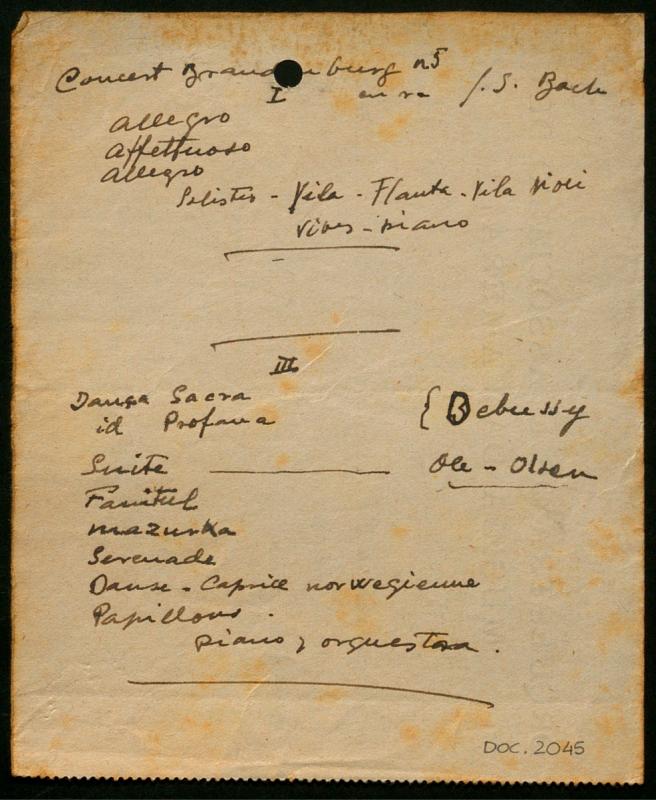 Concert Brandenburg n5
I en re J. S. Bach
Allegro
Affettuoso
Allegro
Solistes - Vila - Flauta - Vila violi
Vives - piano
III
Dança Sacra
id Profana { Debussy
Suite Ole - Olsen
Fanitul
Mazurka
Serenade
Danse - Caprice norwegienne
Papillons.
piano y orquestra.
DOC. 2045